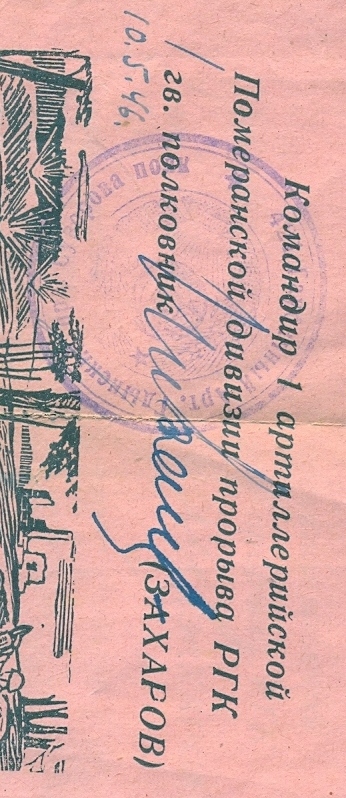 Командир 1 артиллерийской
Померанской дивизии прорыва РГК
гв. полковник (ЗАХАРОВ)
10.5.46.